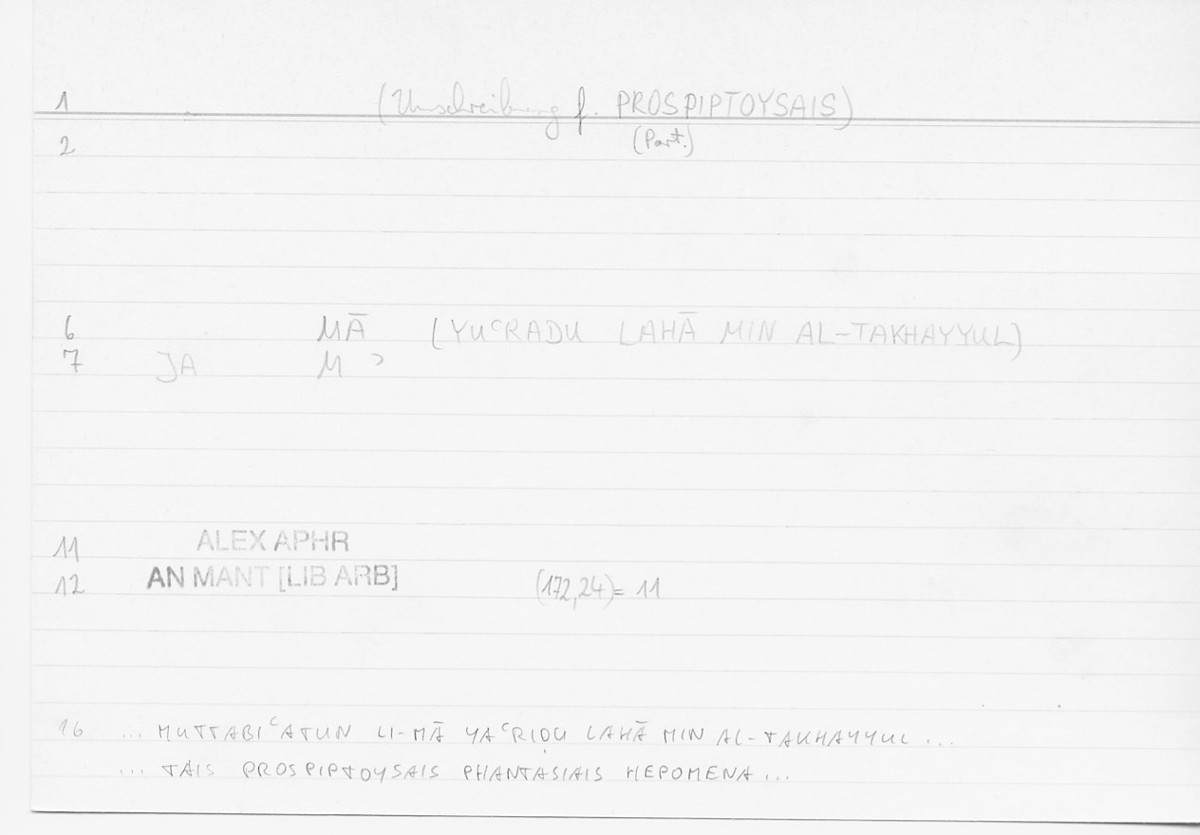 1 (Umschreibung f. PROSPIPTOYSAIS)
2 (Part.)
6 MĀ (YUʿRADU LAHĀ MIN AL-TAKHAYYUL)
7 JA M ʾ
11 ALEX APHR
12 AN MANT [LIB ARB] (172,24)= 11
16 ... MUTTABIʿATUN LI-MĀ YAʿRIḌU LAHĀ MIN AL-TAKHAYYUL ...
... TAIS PROSPIPTOYSAIS PHANTASIAIS HEPOMENA ...